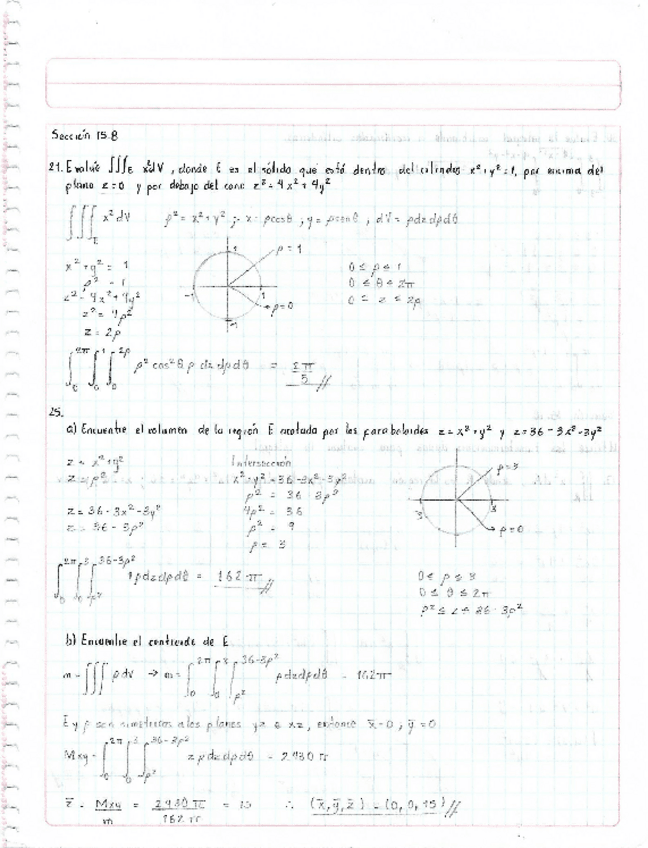 Sección 15.8
21. Evalúe ∭_E x²dV, donde E es el sólido que está dentro del cilindro x²+y²=1, por encima del
plano z=0 y por debajo del cono z²=4x²+4y²
∭_E x² dV   ρ²=x²+y² ;  x=ρcosθ, y=ρsenθ, dV=ρdzdρdθ
x²+y²=1
ρ²=1
z²=4x²+4y²
z²=4ρ²
z=2ρ
1
-1
1
-1
ρ=1
ρ=0
0≤ρ≤1
0≤θ≤2π
0≤z≤2ρ
∫₀^2π ∫₀^1 ∫₀^2ρ ρ²cos²θ ρ dzdρdθ = 2π/5 //
25.
a) Encuentre el volumen de la región E acotada por los paraboloides z=x²+y² y z=36-3x²-3y²
z=x²+y²
z=ρ²
z=36-3x²-3y²
z=36-3ρ²
Intersección
x²+y²=36-3x²-3y²
ρ²=36-3ρ²
4ρ²=36
ρ²=9
ρ=3
3
3
ρ=3
ρ=0
∫₀^2π ∫₀^3 ∫_ρ²^36-3ρ² ρdzdρdθ = 162π //
0≤ρ≤3
0≤θ≤2π
ρ²≤z≤36-3ρ²
b) Encuentre el centroide de E
m=∭ρdv → m=∫₀^2π ∫₀^3 ∫_ρ²^36-3ρ² ρdzdρdθ = 162π
E y ρ son simétricos a los planos yz e xz, entonce x̄=0, ȳ=0
Mxy=∫₀^2π ∫₀^3 ∫_ρ²^36-3ρ² zρdzdρdθ = 2430π
z̄ = Mxy/m = 2430π/162π = 15 ∴ (x̄,ȳ,z̄)=(0,0,15) //